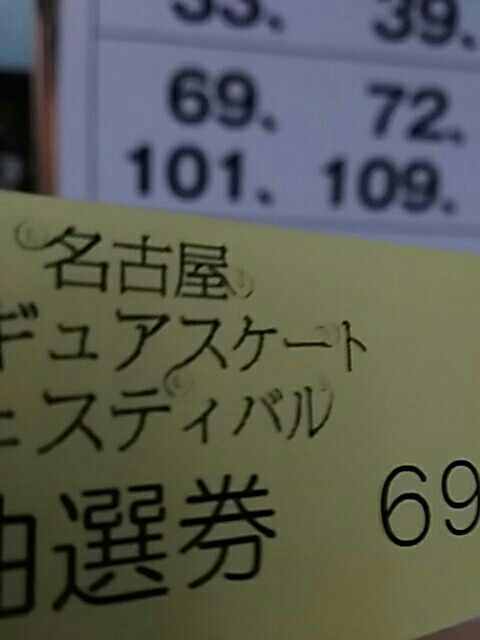 33、 39、
69、 72、
101、 109、
名古屋
ギュアスケート
ェスティバル
抽選券 69